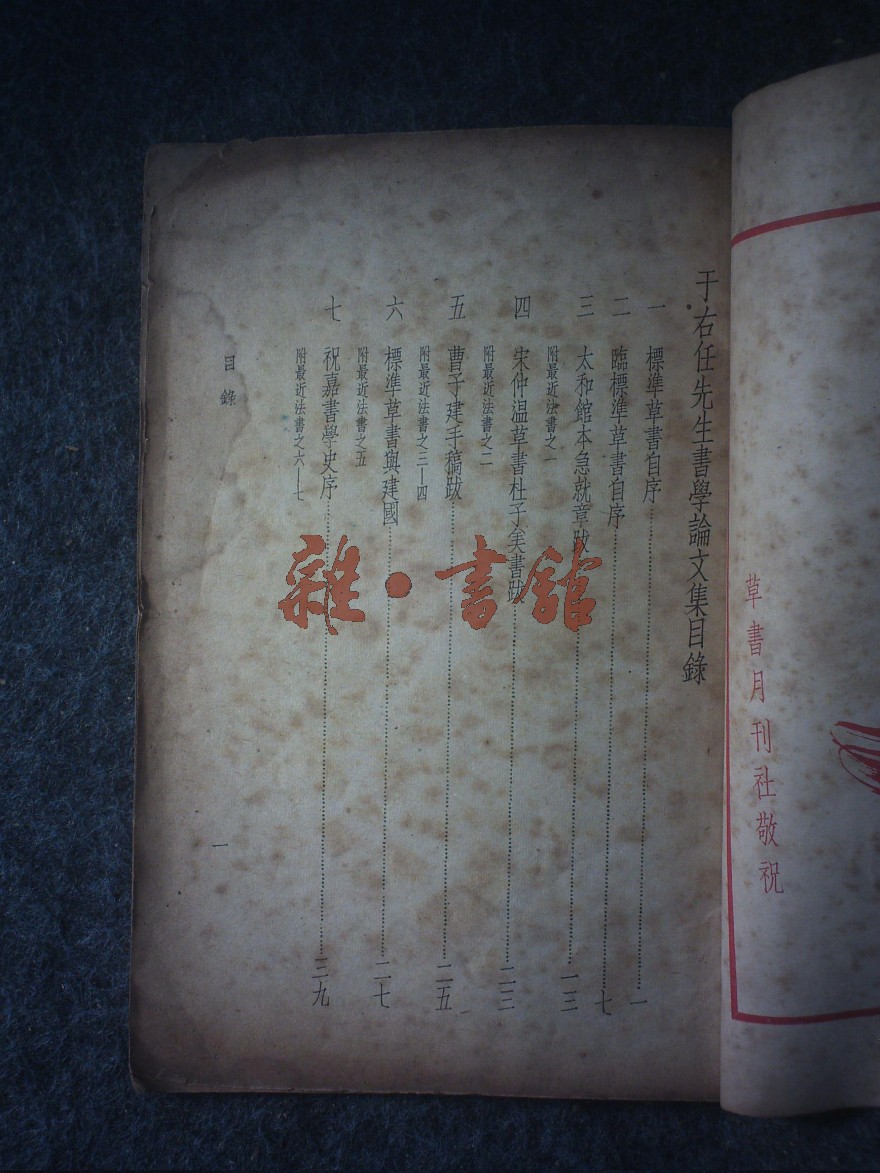 草書月刊社敬祝
于右任先生書學論文集目錄
一 標準草書自序……一
二 臨標準草書自序……七
三 太和館本急就章跋……一三
附最近法書之一
四 宋仲温草書杜子美書跋……二三
附最近法書之二
五 曹子建手稿跋……二五
附最近法書之三—四
六 標準草書與建國……二七
附最近法書之五
七 祝嘉書學史序……三九
附最近法書之六—七
目錄
一
雜·書館